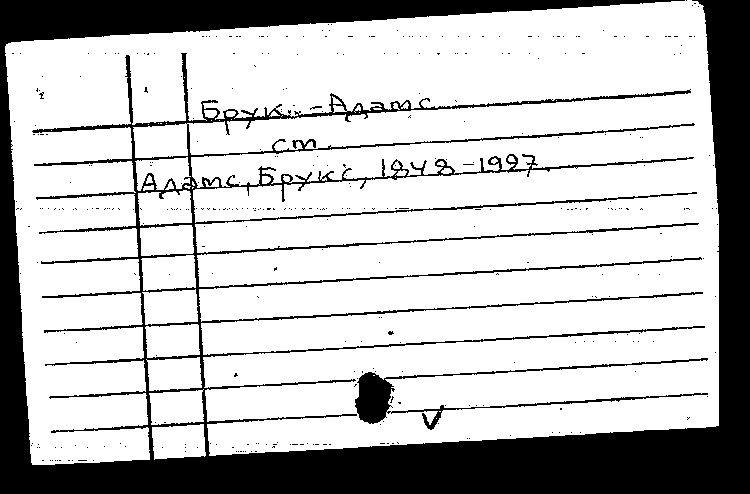 Брукс-Адамс
ст.
Адамс, Брукс, 1848-1927.